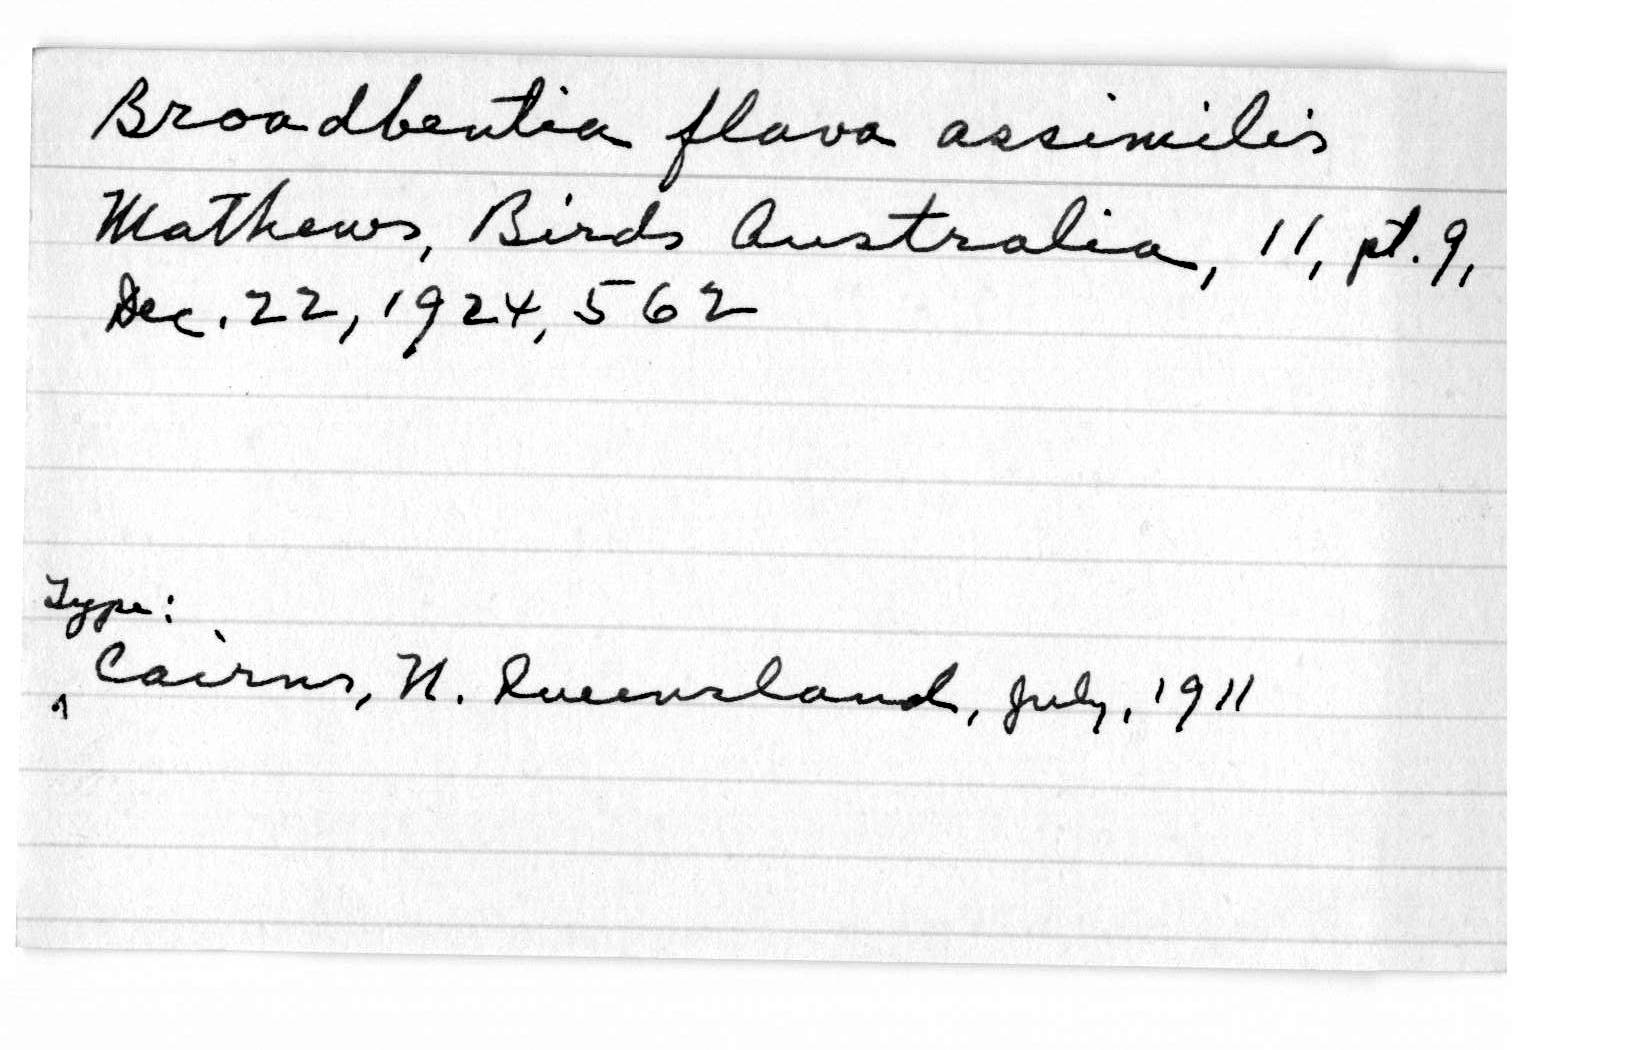 Broadbentia flava assimilis
Mathews, Birds Australia, 11, pt. 9,
Dec. 22, 1924, 562
Type:
Cairns, N. Queensland, July, 1911